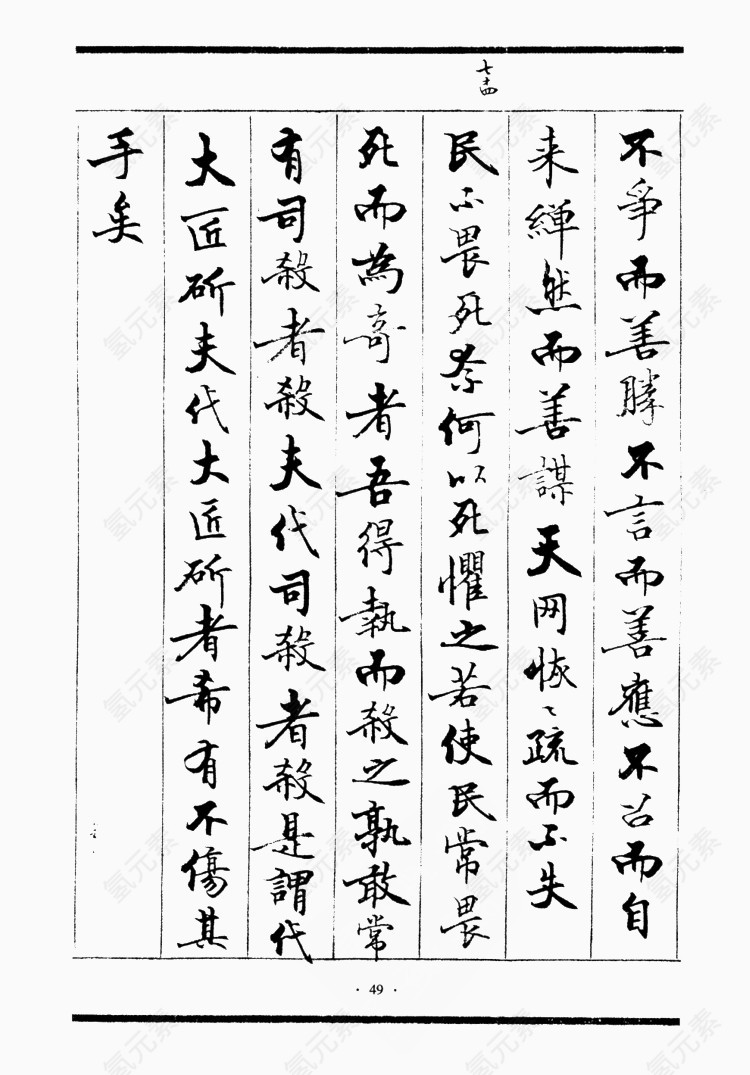 七十四
不爭而善勝不言而善應不召而自
来繟然而善謀天网恢〻疏而不失
民不畏死奈何以死懼之若使民常畏
死而為奇者吾得執而殺之孰敢常
有司殺者殺夫代司殺者殺是謂代
大匠斫夫代大匠斫者希有不傷其
手矣
· 49 ·
氢元素